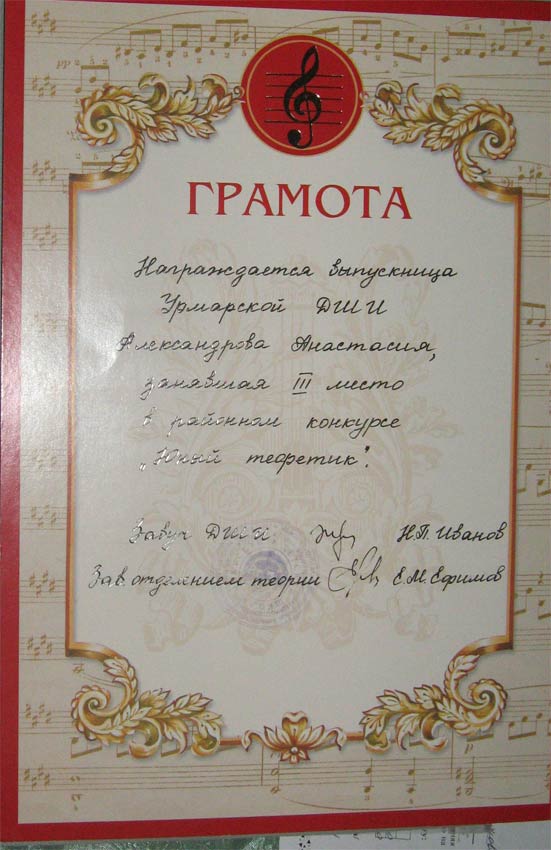 ГРАМОТА
Награждается выпускница
Урмарской ДШИ
Александрова Анастасия,
занявшая III место
в районном конкурсе
„Юный теоретик".
Завуч ДШИ Н.П. Иванов
Зав. отделением теории Е.М. Ефимов